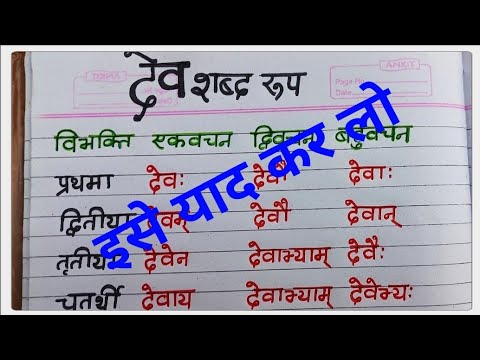 ANKIT
Page No
देव शब्द रूप
विभक्ति एकवचन द्विवचन बहुवचन
प्रथमा देवः देवौ देवाः
द्वितीया देवम् देवौ देवान्
तृतीया देवेन देवाभ्याम् देवैः
चतर्थी देवाय देवाभ्याम् देवेभ्यः
इसे याद कर लो